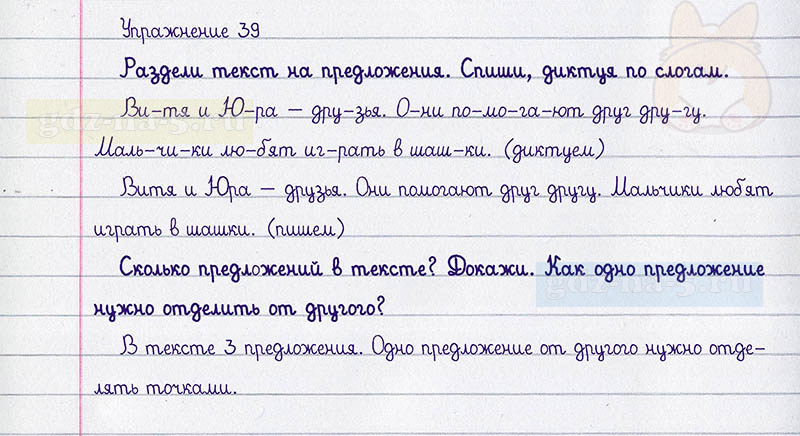 Упражнение 39
Раздели текст на предложения. Спиши, диктуя по слогам.
Ви-тя и Ю-ра – дру-зья. О-ни по-мо-га-ют друг дру-гу.
Маль-чи-ки лю-бят иг-рать в шаш-ки. (диктуем)
Витя и Юра – друзья. Они помогают друг другу. Мальчики любят
играть в шашки. (пишем)
Сколько предложений в тексте? Докажи. Как одно предложение
нужно отделить от другого?
В тексте 3 предложения. Одно предложение от другого нужно отде-
лять точками.
gdz-na-5.ru
gdz-na-5.ru